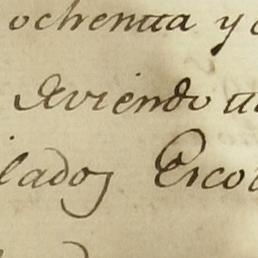 ochenta y
deviendo
lados Esco